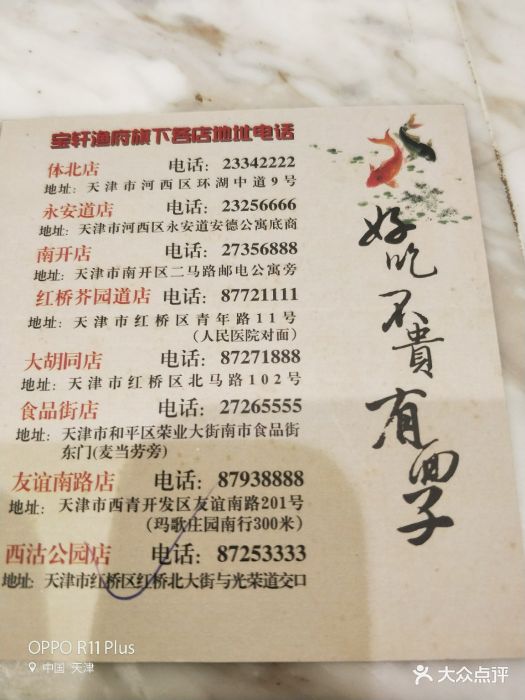 宝轩渔府旗下各店地址电话
体北店 电话：23342222
地址：天津市河西区环湖中道9号
永安道店 电话：23256666
地址：天津市河西区永安道安德公寓底商
南开店 电话：27356888
地址：天津市南开区二马路邮电公寓旁
红桥芥园道店 电话：87721111
地址：天津市红桥区青年路11号
（人民医院对面）
大胡同店 电话：87271888
地址：天津市红桥区北马路102号
食品街店 电话：27265555
地址：天津市和平区荣业大街南市食品街
东门(麦当劳旁)
友谊南路店 电话：87938888
地址：天津市西青开发区友谊南路201号
(玛歌庄园南行300米)
西沽公园店 电话：87253333
地址：天津市红桥区红桥北大街与光荣道交口
好吃不貴有面子
OPPO R11 Plus
中国·天津
大众点评